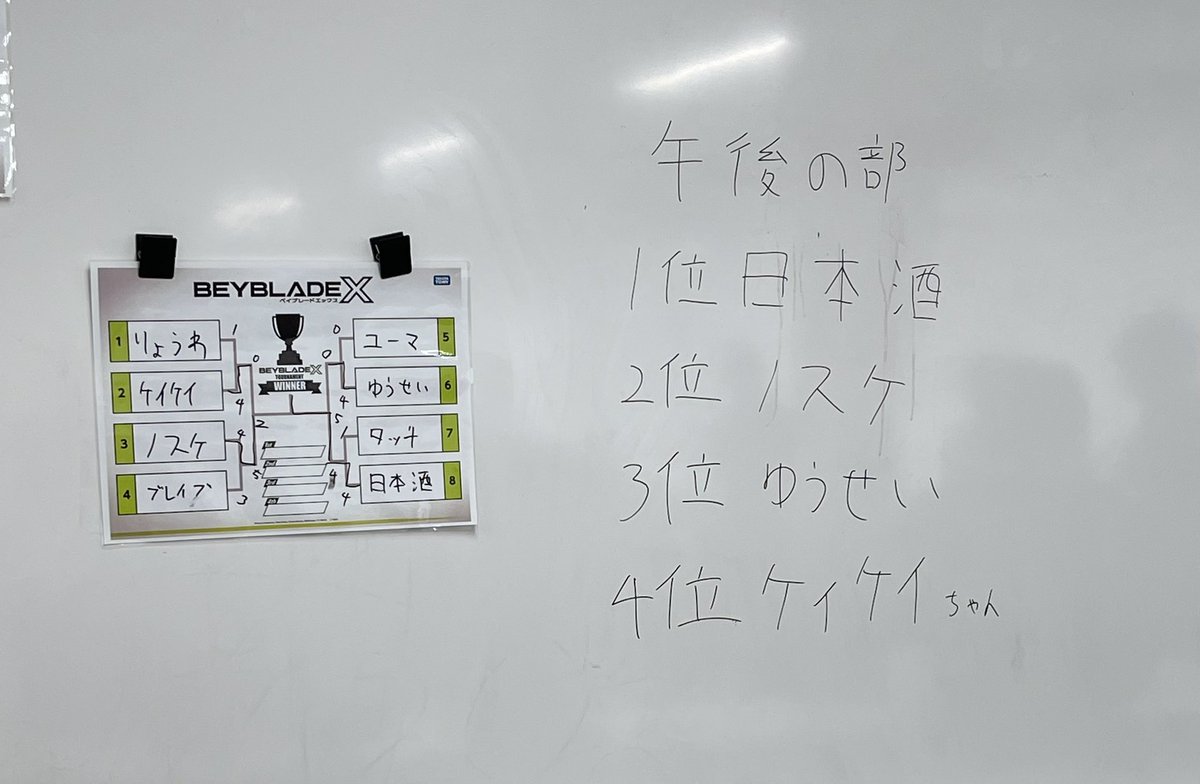 午後の部
1位 日本酒
2位 ノスケ
3位 ゆうせい
4位 ケイケイちゃん
BEYBLADE X
ベイブレードエックス
TAKARA TOMY
1 りょうれ 1
2 ケイケイ 4
0
3 ノスケ 4
4 ブレイブ 3
5
BEYBLADE X
TOURNAMENT
WINNER
2
5
0 ユーマ 5
4 ゆうせい 6
0
1 タッチ 7
4 日本酒 8
4